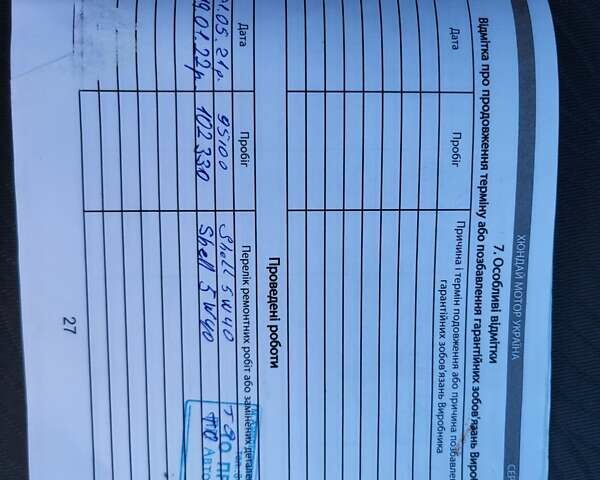 ХЮНДАЙ МОТОР УКРАЇНА
7. Особливі відмітки
Відмітка про продовження терміну або позбавлення гарантійних зобов'язань
Дата
Пробіг
Причина і термін подовження або причина
гарантійних зобов'язань Виробника
Проведені роботи
Дата
Пробіг
Перелік ремонтних робіт або замінених
.05.21р. 95100 Shell 5W40
.01.22р. 102 330 Shell 5W40
27